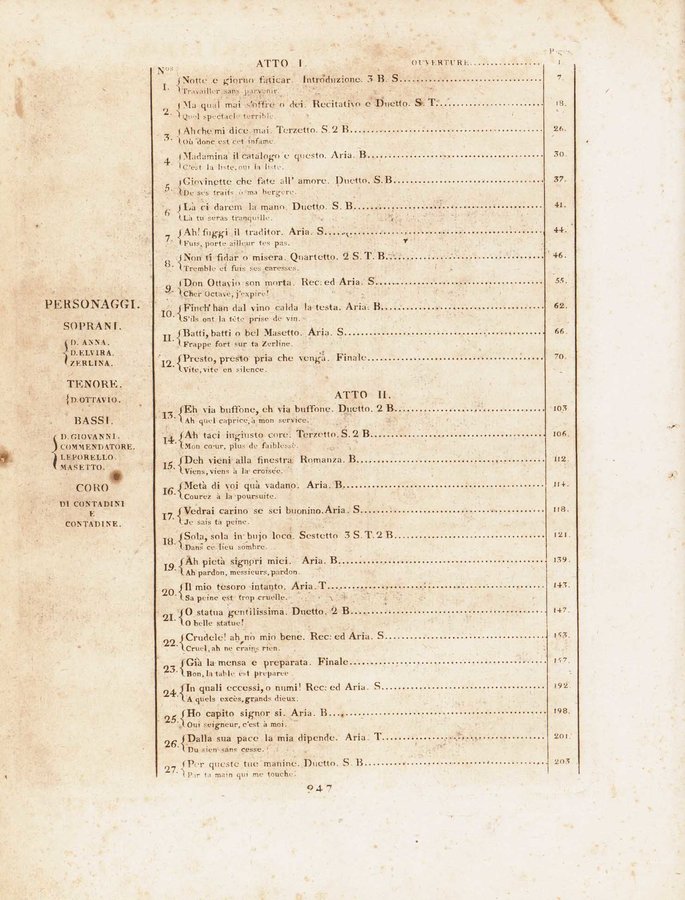 PERSONAGGI.
SOPRANI.
D. ANNA.
D. ELVIRA.
ZERLINA.
TENORE.
D. OTTAVIO.
BASSI.
D. GIOVANNI.
COMMENDATORE.
LEPORELLO.
MASETTO.
CORO
DI CONTADINI
E
CONTADINE.
Nos ATTO I. OUVERTURE................ Pages 1.
1. Notte e giorno faticar. Introduzione. 3 B. S........ 7.
Travailler sans parvenir.
2. Ma qual mai s'offre o dei. Recitativo e Duetto. S. T........ 18.
Quel spectacle terrible.
3. Ah che mi dice mai. Terzetto. S. 2 B........ 26.
Où donc est cet infame.
4. Madamina il catalogo e questo. Aria. B........ 30.
C'est la liste, oui la liste.
5. Giovinette che fate all' amore. Duetto. S. B........ 37.
De ses traits o ma bergere.
6. Là ci darem la mano. Duetto. S. B........ 41.
Là tu seras tranquille.
7. Ah! fuggi il traditor. Aria. S........ 44.
Fuis, porte ailleur tes pas.
8. Non ti fidar o misera. Quartetto. 2 S. T. B........ 46.
Tremble et fuis ses caresses.
9. Don Ottavio son morta. Rec: ed Aria. S........ 55.
Cher Octave, j'expire!
10. Finch' han dal vino calda la testa. Aria. B........ 62.
S'ils ont la tête prise de vin.
11. Batti, batti o bel Masetto. Aria. S........ 66.
Frappe fort sur ta Zerline.
12. Presto, presto pria che venga. Finale........ 70.
Vite, vite en silence.
ATTO II.
13. Eh via buffone, eh via buffone. Duetto. 2 B........ 103
Ah quel caprice, à mon service.
14. Ah taci ingiusto core. Terzetto. S. 2 B........ 106.
Mon cœur, plus de faiblesse.
15. Deh vieni alla finestra. Romanza. B........ 112.
Viens, viens à la croisée.
16. Metà di voi quà vadano. Aria. B........ 114.
Courez à la poursuite.
17. Vedrai carino se sei buonino. Aria. S........ 118.
Je sais ta peine.
18. Sola, sola in bujo loco. Sestetto 3 S. T. 2 B........ 121.
Dans ce lieu sombre.
19. Ah pietà signori miei. Aria. B........ 139.
Ah pardon, messieurs, pardon.
20. Il mio tesoro intanto. Aria. T........ 143.
Sa peine est trop cruelle.
21. O statua gentilissima. Duetto. 2 B........ 147.
O belle statue!
22. Crudele! ah no mio bene. Rec: ed Aria. S........ 153.
Cruel, ah ne crains rien.
23. Già la mensa e preparata. Finale........ 157.
Bon, la table est preparee.
24. In quali eccessi, o numi! Rec: ed Aria. S........ 192
A quels excès, grands dieux.
25. Ho capito signor si. Aria. B........ 198.
Oui seigneur, c'est à moi.
26. Dalla sua pace la mia dipende. Aria. T........ 201.
Du sien sans cesse.
27. Per queste tue manine. Duetto. S. B........ 203
Par ta main qui me touche.
947